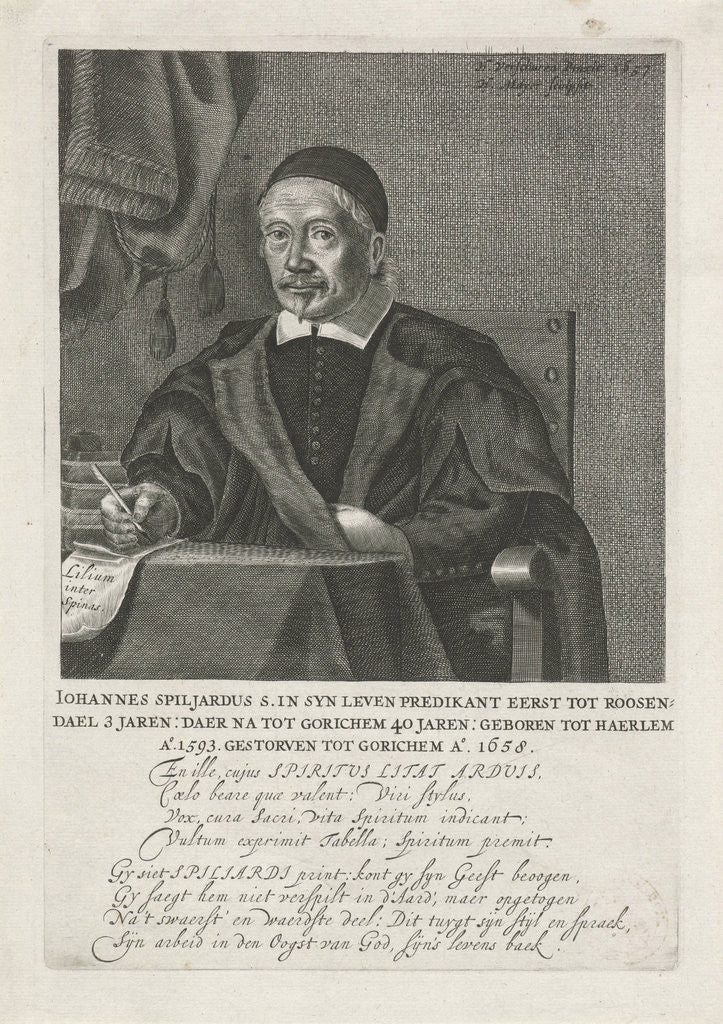 H. Verschuren Pinxit 1657
H. Major sculpsit
Lilium
inter
Spinas.
IOHANNES SPILJARDUS S. IN SYN LEVEN PREDIKANT EERST TOT ROOSEN=
DAEL 3 JAREN: DAER NA TOT GORICHEM 40 JAREN: GEBOREN TOT HAERLEM
Aº. 1593. GESTORVEN TOT GORICHEM Aº. 1658.
En ille, cujus SPIRITUS LITAT ARDUIS,
Cœlo beare quæ valent: Viri stylus,
Vox, cura Sacri, vita Spiritum indicant;
Vultum exprimit Tabella; Spiritum premit.
Gy siet SPILIARDI print: kont gy syn Geest beoogen,
Gy saegt hem niet verspilt in d'Aard', maer opgetogen
Na't swaerst' en waerdste deel: Dit tuygt sÿn stÿl en spraek,
Sÿn arbeid in den Oogst van God, sÿns levens baek.